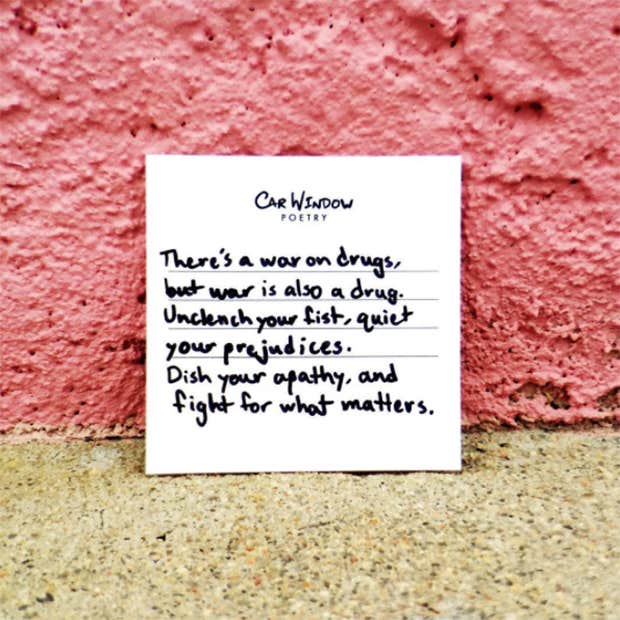 CAR WINDOW
POETRY
There's a war on drugs,
but war is also a drug.
Unclench your fist, quiet
your prejudices.
Dish your apathy, and
fight for what matters.